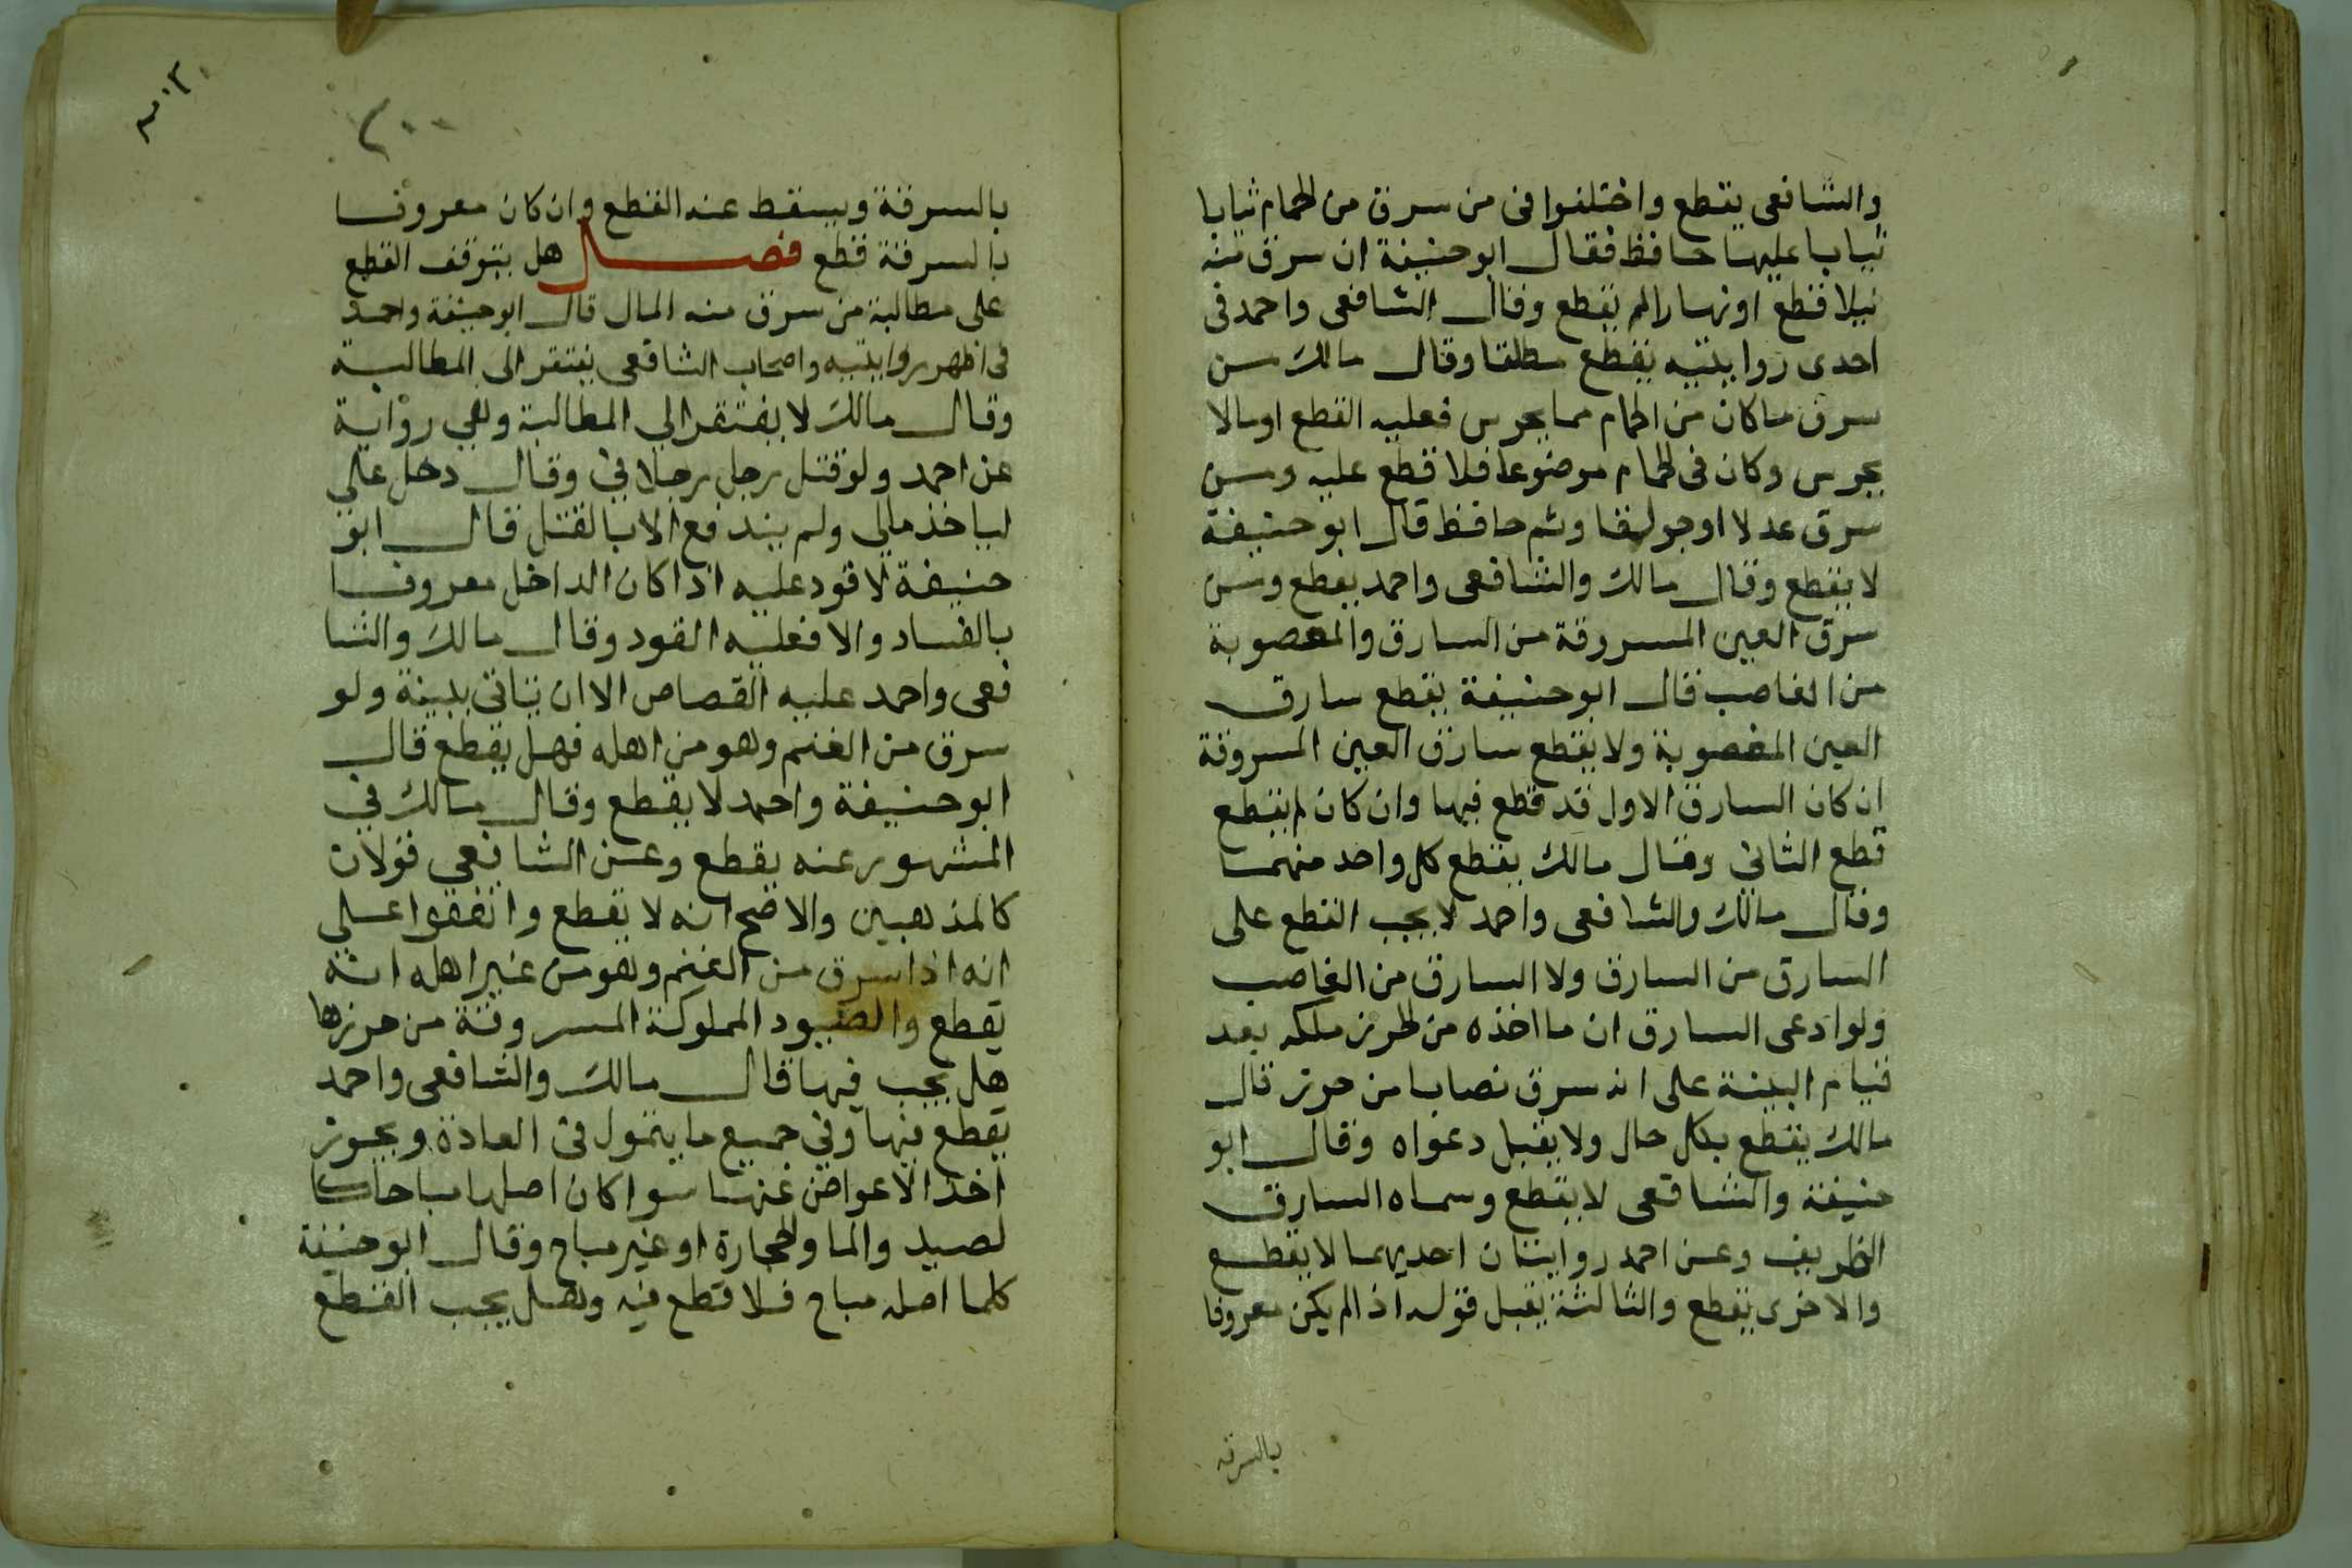 والشافعى يقطع واختلفوا فى من سرق من الحمام ثيابا
ثيابا عليها حافظ فقال ابوحنيفة ان سرق منه
ليلا قطع اونهارا لم يقطع وقال الشافعى واحمد فى
احدى روايتيه يقطع مطلقا وقال مالك من
سرق ماكان من الحمام مما يحرس فعليه القطع اومالا
يحرس وكان فى الحمام موضوعا فلا قطع عليه ومن
سرق عدلا اوجولقا وثم حافظ قال ابوحنيفة
لا يقطع وقال مالك والشافعى واحمد يقطع ومن
سرق العين المسروقة من السارق والمغصوبة
من الغاصب قال ابوحنيفة يقطع سارق
العين المغصوبة ولا يقطع سارق العين المسروقة
ان كان السارق الاول قد قطع فيها وان كان لم يقطع
قطع الثانى وقال مالك يقطع كل واحد منهما
وقال مالك والشافعى واحمد لا يجب القطع على
السارق من السارق ولا السارق من الغاصب
ولوادعى السارق ان ما اخذه من الحرز ملكه بعد
قيام البينة على انه سرق نصابا من حرز قال
مالك يقطع بكل حال ولا يقبل دعواه وقال ابو
حنيفة والشافعى لا يقطع وسماه السارق
الظريف وعن احمد روايتان احديهما لا يقطع
والاخرى يقطع والثالثة يقبل قوله اذا لم يكن معروفا
بالسرقة
٢٠٠
بالسرقة ويسقط عنه القطع وان كان معروفا
بالسرقة قطع فصل هل يتوقف القطع
على مطالبة من سرق منه المال قال ابوحنيفة واحمد
فى اظهر روايتيه واصحاب الشافعى يفتقر الى المطالبة
وقال مالك لا يفتقر الى المطالبة وهى رواية
عن احمد ولوقتل رجل رجلا فى وقال دخل على
لياخذ مالى ولم يندفع الا بالقتل قال ابو
حنيفة لا قود عليه اذا كان الداخل معروفا
بالفساد والا فعليه القود وقال مالك والشا
فعى واحمد عليه القصاص الا ان ياتى ببينة ولو
سرق من الغنم وهو من اهله فهل يقطع قال
ابوحنيفة واحمد لا يقطع وقال مالك فى
المشهور عنه يقطع وعن الشافعى قولان
كالمذهبين والاصح انه لا يقطع واتفقوا على
انه اذا سرق من الغنم وهو من غير اهله انه
يقطع والصيود المملوكة المسروقة من حرزها
هل يجب فيها قال مالك والشافعى واحمد
يقطع فيها وفى جميع ما يتمول فى العادة ويجوز
اخذ الاعواض عنها سوا كان اصلها مباحا كا
لصيد والما والحجارة او غير مباح وقال ابوحنيفة
كلما اصله مباح فلا قطع فيه وهل يجب القطع